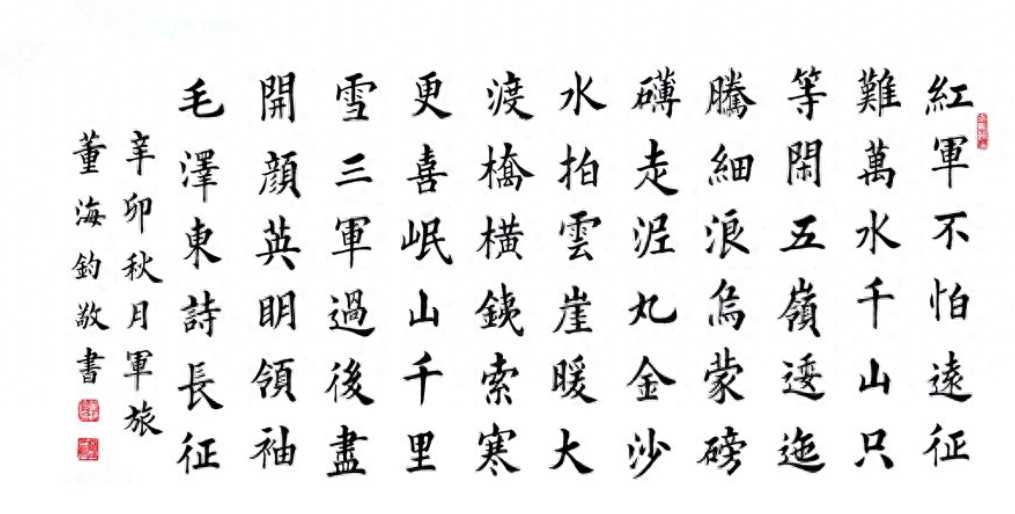 紅軍不怕遠征
難萬水千山只
等閑五嶺逶迤
騰細浪烏蒙磅
礴走泥丸金沙
水拍雲崖暖大
渡橋橫鐵索寒
更喜岷山千里
雪三軍過後盡
開顏英明領袖
毛澤東詩長征
辛卯秋月軍旅
董海鈞敬書